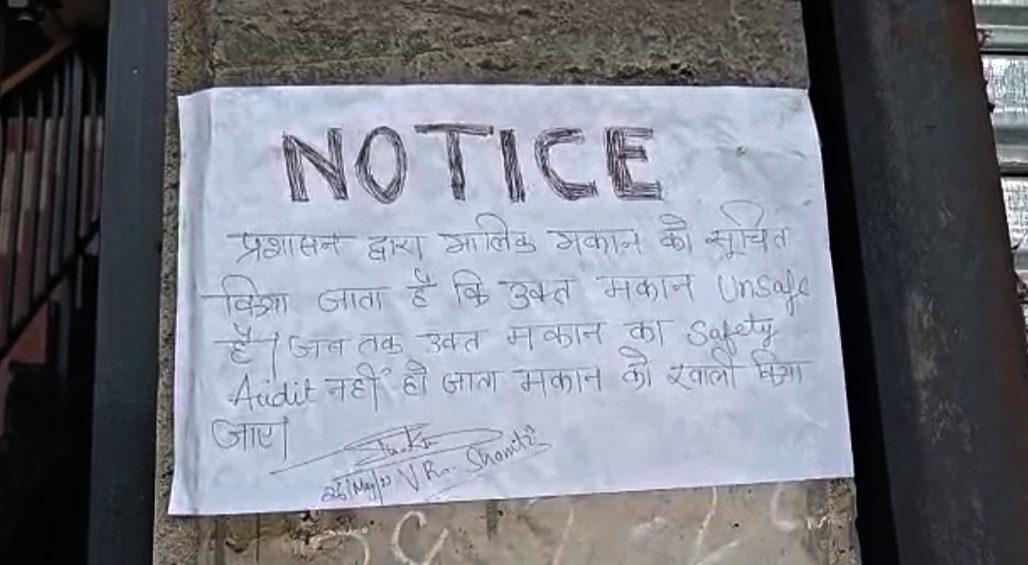 NOTICE
प्रशासन द्वारा मालिक मकान को सूचित
किया जाता है कि उक्त मकान Unsafe
है। जब तक उक्त मकान का Safety
Audit नहीं हो जाता मकान को खाली किया
जाए।